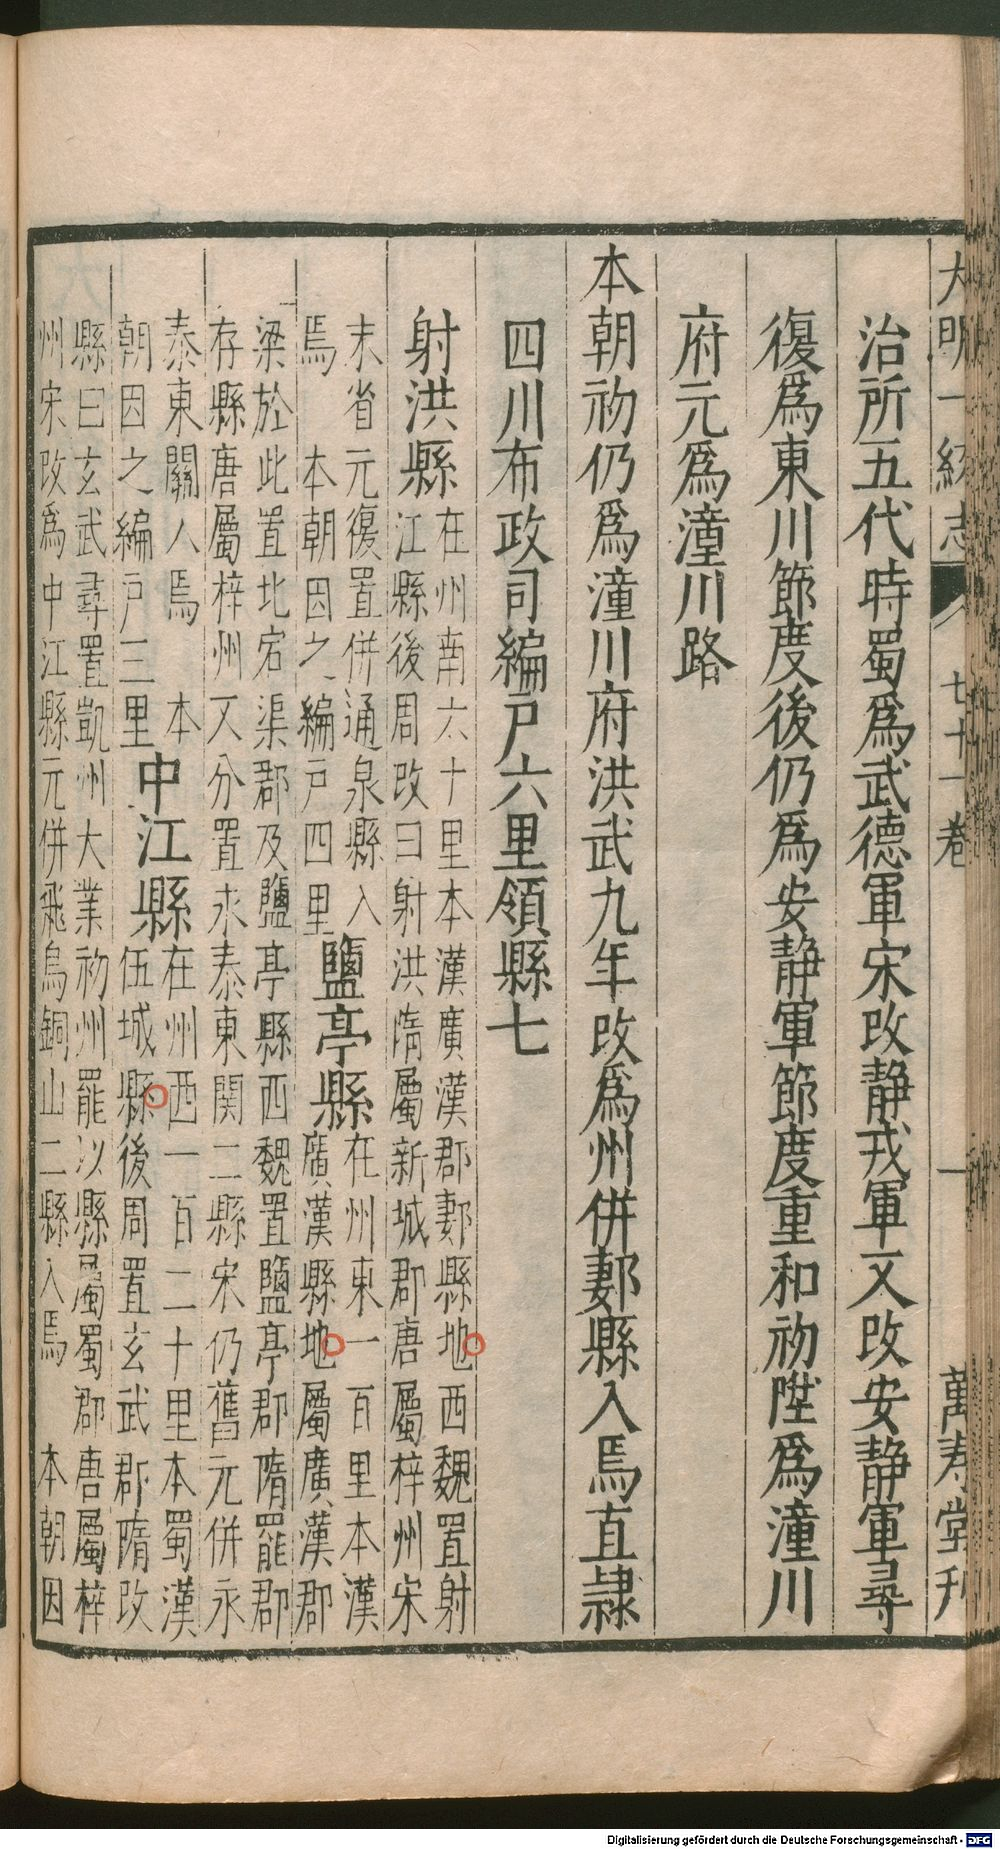 大明一統志 七十一卷 一 萬壽堂刋
治所五代時蜀爲武德軍宋改静戎軍又改安静軍尋
復爲東川節度後仍爲安静軍節度重和初陞爲潼川
府元爲潼川路
本朝初仍爲潼川府洪武九年改爲州併郪縣入焉直隷
四川布政司編戸六里領縣七
射洪縣
在州南六十里本漢廣漢郡郪縣地西魏置射
江縣後周改曰射洪隋屬新城郡唐屬梓州宋
末省元復置併通泉縣入
焉 本朝因之編戸四里
鹽亭縣
在州東一百里本漢
廣漢縣地屬廣漢郡
梁於此置北宕渠郡及鹽亭縣西魏置鹽亭郡隋罷郡
存縣唐屬梓州又分置永泰東関二縣宋仍舊元併永
泰東關人焉 本
朝因之編戸三里
中江縣
在州西一百二十里本蜀漢
伍城縣後周置玄武郡隋改
縣曰玄武尋置凱州大業初州罷以縣屬蜀郡唐屬梓
州宋改爲中江縣元併飛烏銅山二縣入焉 本朝因
Digitalisierung gefördert durch die Deutsche Forschungsgemeinschaft - DFG